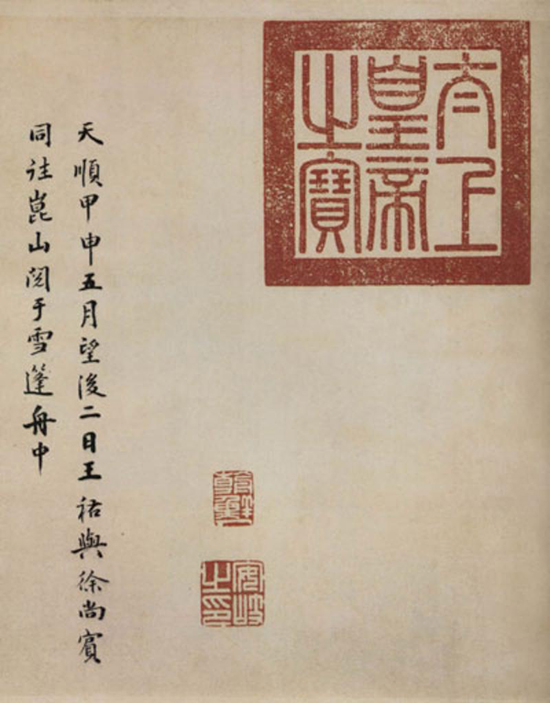 太上
皇帝
之寶
安岐
之印
天順甲申五月望後二日王祐與徐尚賓
同往崑山閱于雪篷舟中